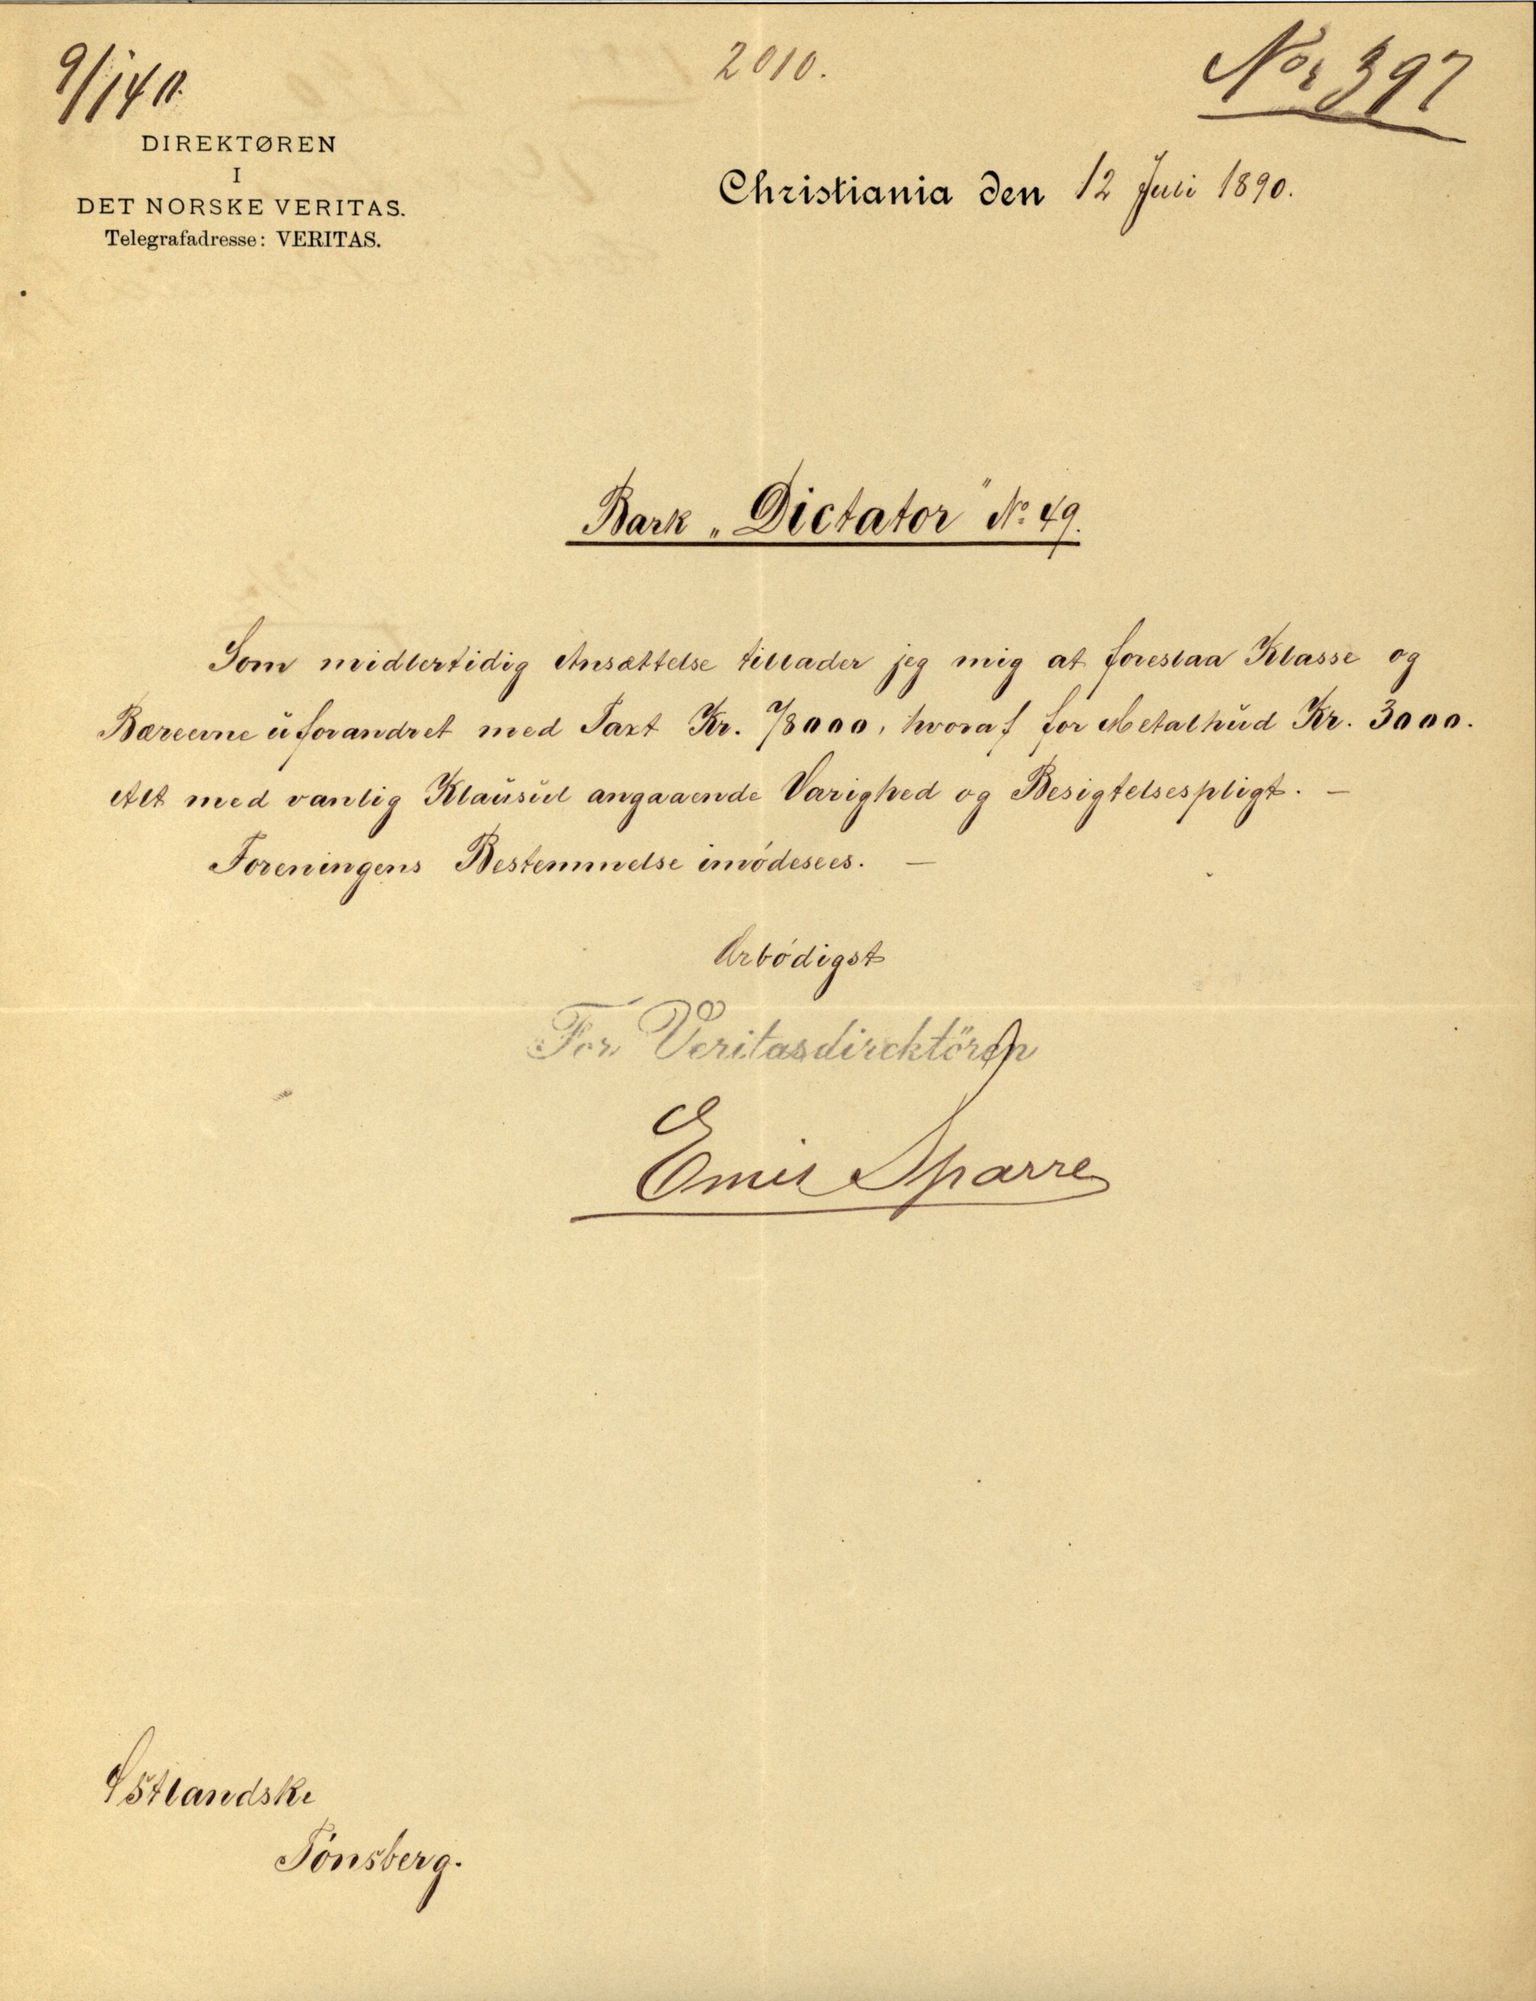 2010.
Nor 397
DIREKTØREN
I
DET NORSKE VERITAS.
Telegrafadresse: VERITAS.
Christiania den 12 Juli 1890.
Bark „Dictator" No. 49.
Som midlertidig Ansættelse tillader jeg mig at foreslaa Klasse og
Bæreevne uforandret med Taxt Kr. 78000, hvoraf for Metalhud Kr. 3000.
Alt med vanlig Klausul angaaende Varighed og Besigtelsespligt. —
Foreningens Bestemmelse imødesees. —
Ærbødigst
For Veritasdirektören
Emil Sparre
Østlandske
Tönsberg.